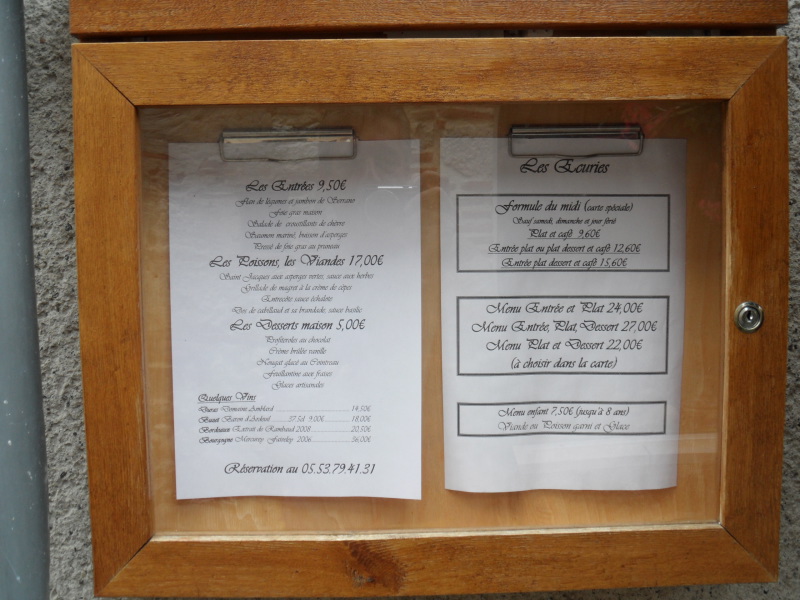 Les Entrées 9,50€
Flan de légumes et jambon de Serrano
Foie gras maison
Salade de croustillants de chèvre
Saumon mariné, buisson d'asperges
Pressé de foie gras au pruneau
Les Poissons, les Viandes 17,00€
Saint Jacques aux asperges vertes, sauce aux herbes
Grillade de magret à la crème de cèpes
Entrecôte sauce échalote
Dos de cabillaud et sa brandade, sauce basilic
Les Desserts maison 5,00€
Profiteroles au chocolat
Crème brûlée vanille
Nougat glacé au Cointreau
Feuillantine aux fraises
Glaces artisanales
Quelques Vins
Duras Domaine Amblard 14,50€
Buzet Baron d'Ardeuil 37,5cl 9,00€ 18,00€
Bordeaux Extrait de Rambaud 2008 20,50€
Bourgogne Mercurey Faiveley 2006 36,00€
Réservation au 05.53.79.41.31
Les Ecuries
Formule du midi (carte spéciale)
Sauf samedi, dimanche et jour férié
Plat et café 9,60€
Entrée plat ou plat dessert et café 12,60€
Entrée plat dessert et café 15,60€
Menu Entrée et Plat 24,00€
Menu Entrée, Plat, Dessert 27,00€
Menu Plat et Dessert 22,00€
(à choisir dans la carte)
Menu enfant 7,50€ (jusqu'à 8 ans)
Viande ou Poisson garni et Glace